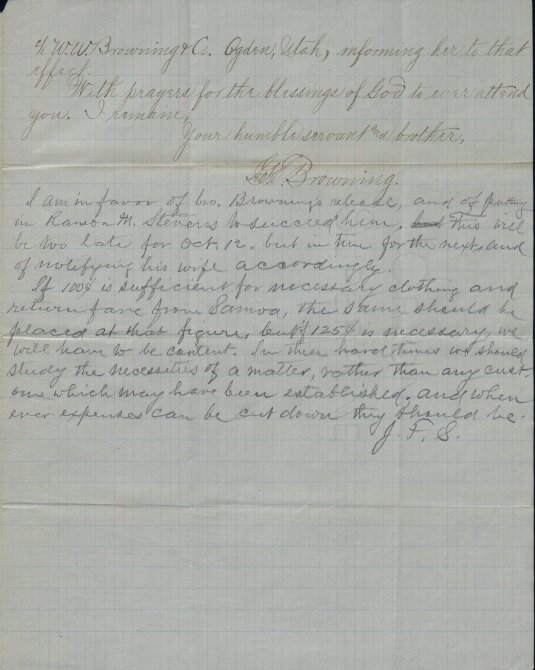 % W. W. Browning & Co. Ogden, Utah, informing her to that
effect.
With prayers for the blessings of God to ever attend
you. I remain,
Your humble servant and brother,
Geo. E. Browning.
I am in favor of bro. Browning's release, and of putting
in Ransom M. Stevens to succeed him, but This will
be too late for Oct. 12. but in time for the next, and
of notifying his wife accordingly.
If 100$ is sufficient for necessary clothing and
return fare from Samoa, the same should be
placed at that figure, but if 125$ is necessary, we
will have to be content. In these hard times we should
study the necessities of a matter, rather than any cust-
oms which may have been established. and when
ever expenses can be cut down they should be.
J. F. S.